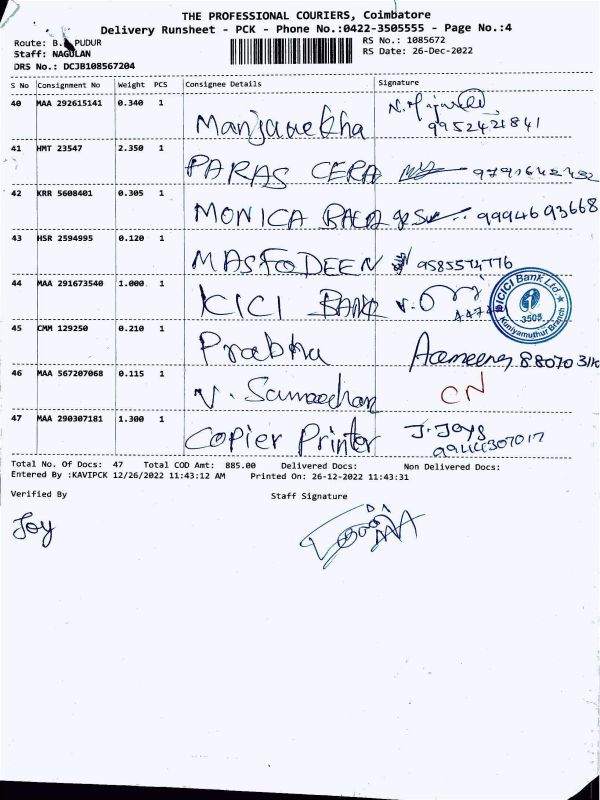 THE PROFESSIONAL COURIERS, Coimbatore
Delivery Runsheet - PCK - Phone No.:0422-3505555 - Page No.:4
Route: B. PUDUR
RS No.: 1085672
Staff: NAGULAN
RS Date: 26-Dec-2022
DRS No.: DCJB108567204
S No Consignment No Weight PCS Consignee Details Signature
40 MAA 292615141 0.340 1 Manjanekha 9952421841
41 HMT 23547 2.350 1 PARAS CERA
42 KRR 5608401 0.305 1 MONICA 9994693668
43 HSR 2594995 0.120 1 MASFODEEN 9585574776
44 MAA 291673540 1.000 1 ICICI BANK
ICICI Bank Ltd.
3505
Kuniyamuthur Branch
45 CMM 129250 0.210 1 Prabhu
46 MAA 567207068 0.115 1 V. CN
47 MAA 290307181 1.300 1 Copier Printer J. Joys
Total No. Of Docs: 47 Total COD Amt: 885.00 Delivered Docs: Non Delivered Docs:
Entered By :KAVIPCK 12/26/2022 11:43:12 AM Printed On: 26-12-2022 11:43:31
Verified By Staff Signature
Joy